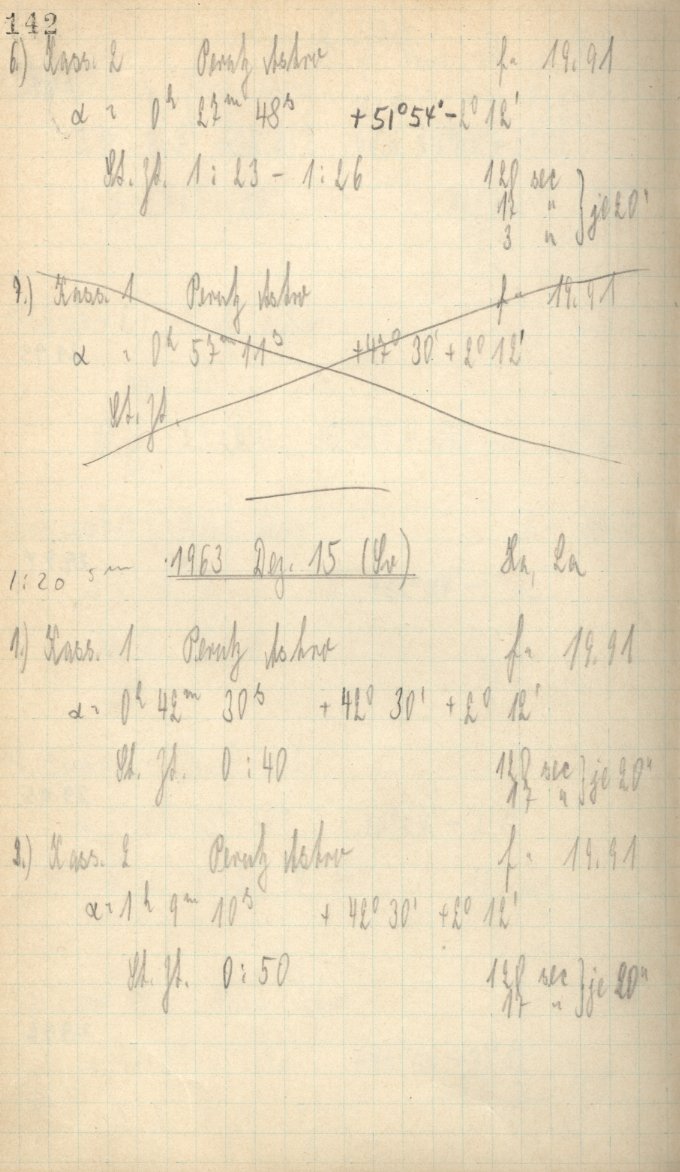 142
6.) Kass. 2 Perutz Astro f = 19.91
α = 0h 27m 48s +51° 54' - 2° 12'
St. Zt. 1:23 - 1:26 120 sec
17 " } je 20"
3 "
7.) Kass. 1 Perutz Astro f = 19.91
α = 0h 57m 11s +47° 30' + 2° 12'
St. Zt.
1:20 1963 Dez. 15 (So) La
1.) Kass. 1 Perutz Astro f = 19.91
α = 0h 42m 30s + 42° 30' + 2° 12'
St. Zt. 0:40 120 sec
17 " } je 20"
2.) Kass. 2 Perutz Astro f = 19.91
α = 1h 9m 10s + 42° 30' + 2° 12'
St. Zt. 0:50 120 sec
17 " } je 20"